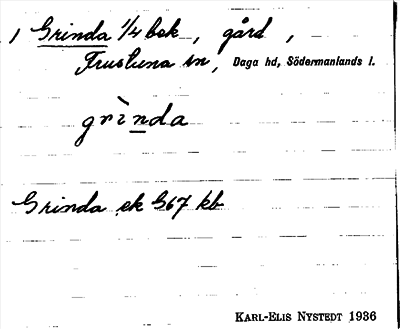 1 Grinda 1/4 bok, gård,
Frustuna sn, Daga hd, Södermanlands l.
grìnda
Grinda ek G67 kb
KARL-ELIS NYSTEDT 1936